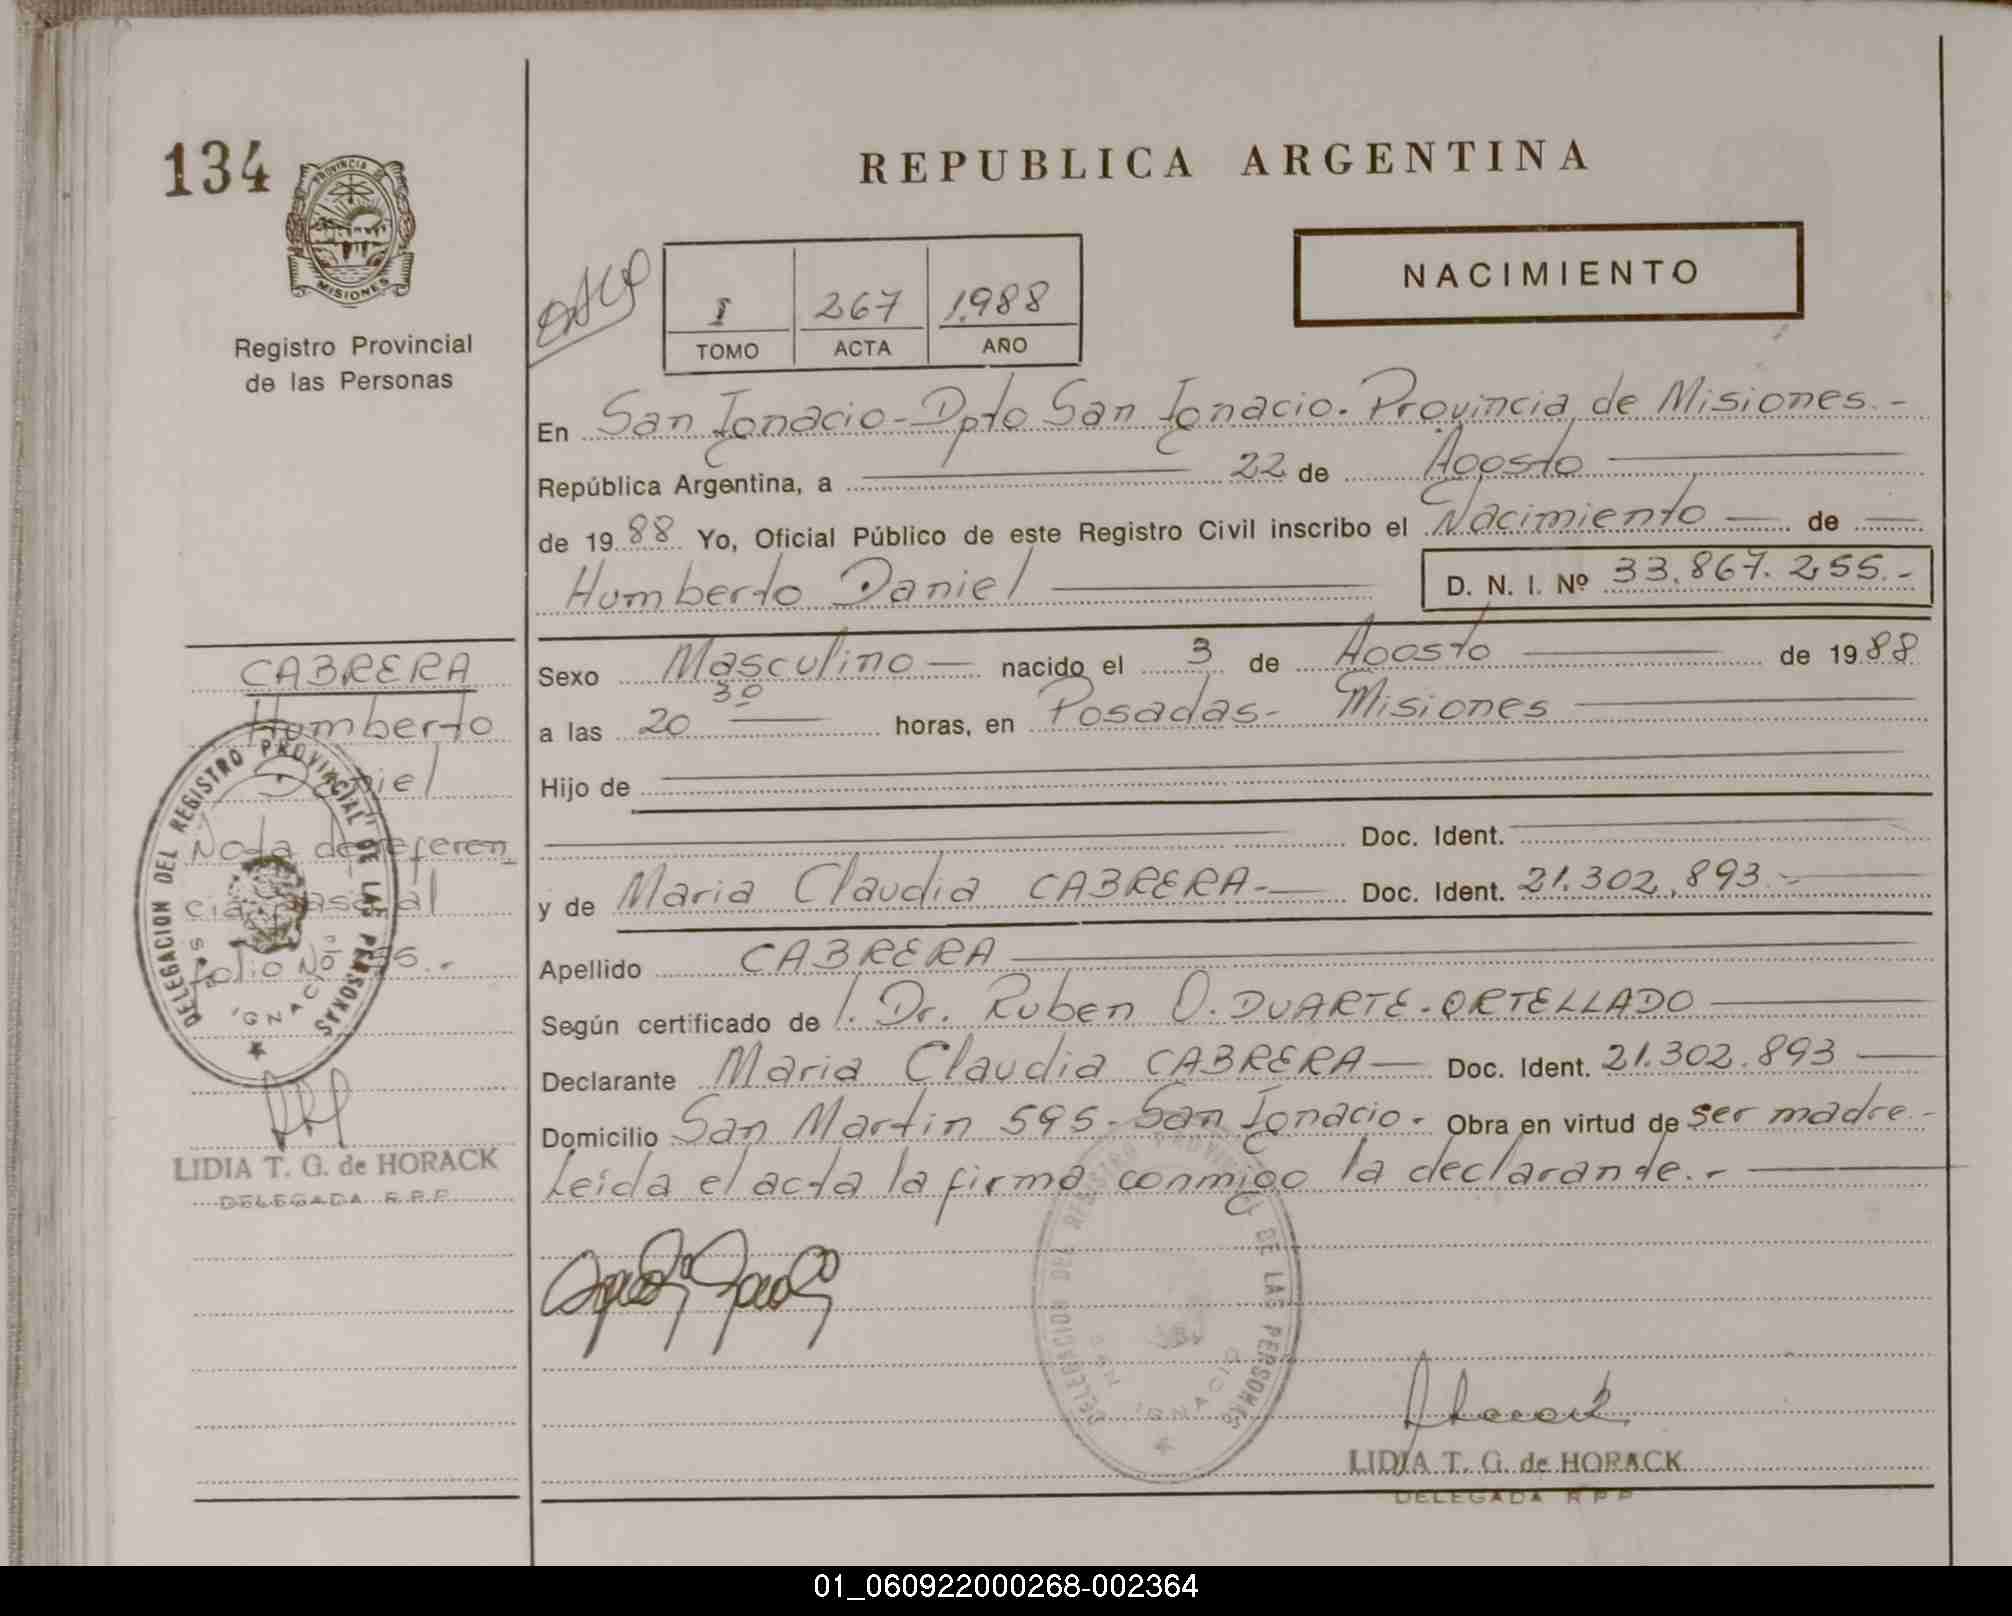 134
PROVINCIA DE
MISIONES
Registro Provincial
de las Personas
REPUBLICA ARGENTINA
NACIMIENTO
I 267 1.988
TOMO ACTA AÑO
En San Ignacio-Dpto San Ignacio. Provincia de Misiones.-
República Argentina, a 22 de Agosto
de 1988 Yo, Oficial Público de este Registro Civil inscribo el Nacimiento de
Humberto Daniel D. N. I. Nº 33.867.255.-
Sexo Masculino nacido el 3 de Agosto de 1988
a las 20 30 horas, en Posadas- Misiones
Hijo de
Doc. Ident.
y de Maria Claudia CABRERA- Doc. Ident. 21.302.893.-
Apellido CABRERA
Según certificado de l. Dr. Ruben O. DUARTE-ORTELLADO
Declarante Maria Claudia CABRERA Doc. Ident. 21.302.893
Domicilio San Martin 595-San Ignacio- Obra en virtud de ser madre.-
Leida el acta la firma conmigo la declarante.-
CABRERA
Humberto
Daniel
Nota de referen
cia pasa al
folio Nº
DELEGACION DEL REGISTRO PROVINCIAL DE LAS PERSONAS
LIDIA T. G. de HORACK
DELEGADA R.P.P.
DELEGACION DEL REGISTRO PROVINCIAL DE LAS PERSONAS
SAN IGNACIO
LIDIA T. G. de HORACK
DELEGADA R P P
01_060922000268-002364